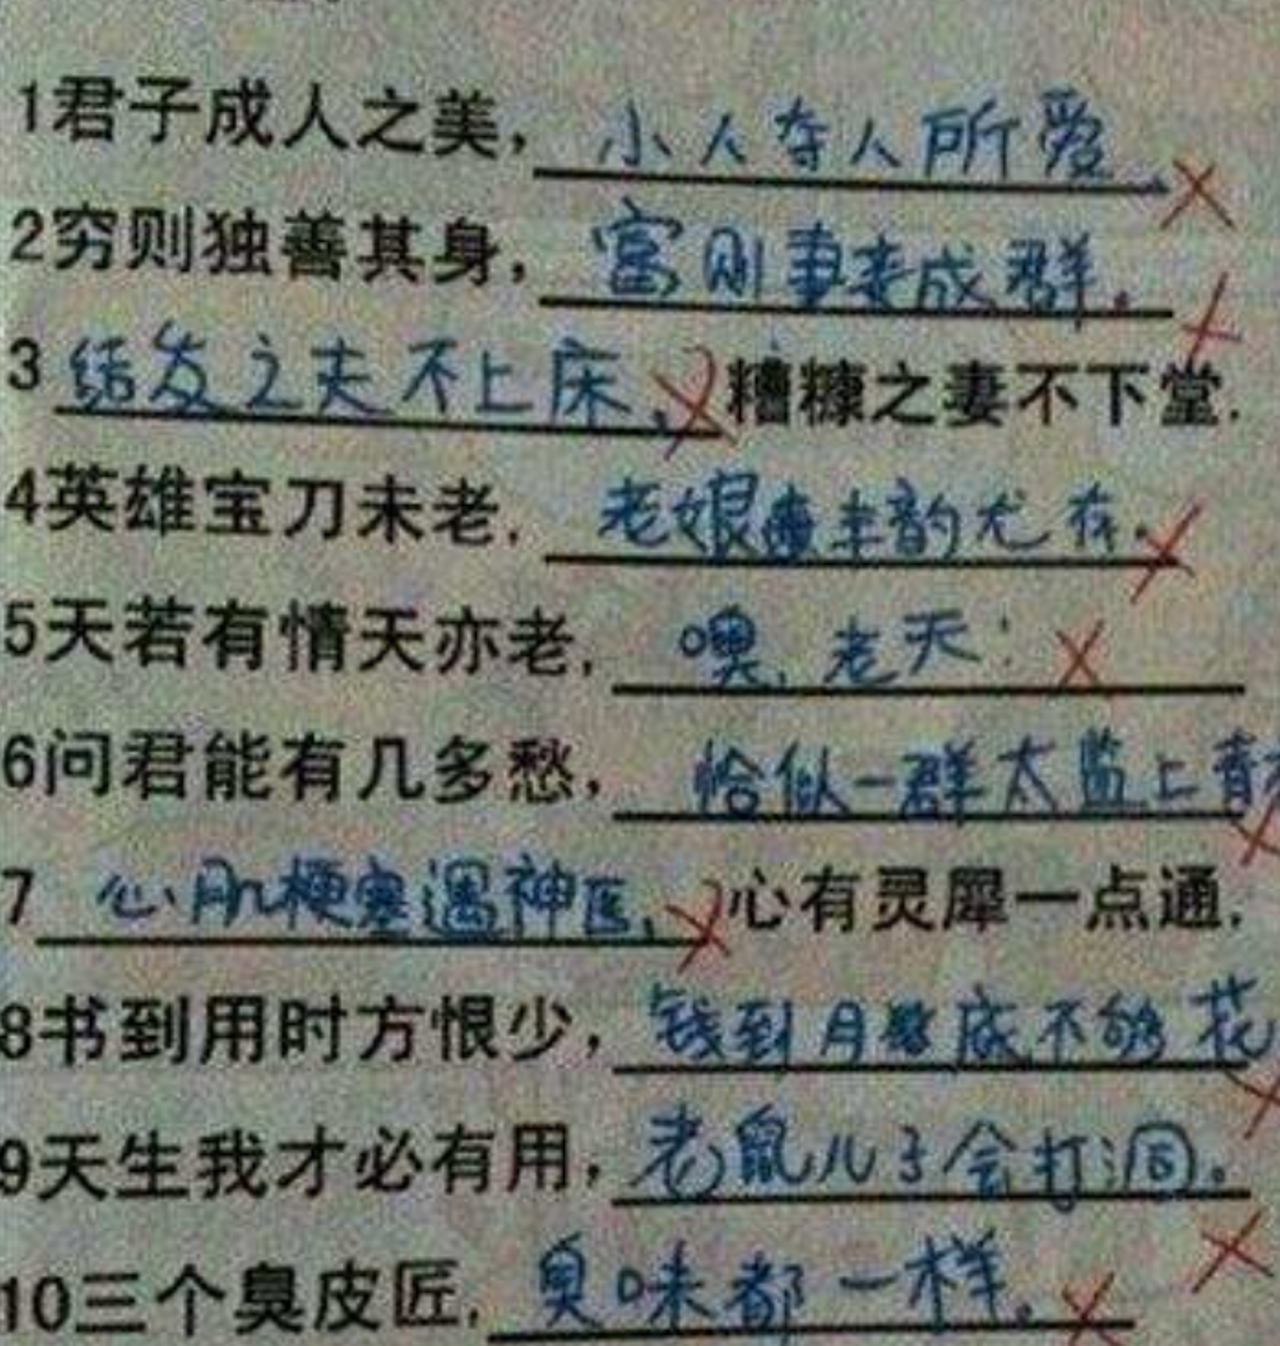 1君子成人之美，小人夺人所爱.
2穷则独善其身，富则妻妻成群.
3结发之夫不上床.糟糠之妻不下堂.
4英雄宝刀未老,老娘丰韵尤存.
5天若有情天亦老,噢,老天!
6问君能有几多愁，恰似一群太监上青
7心肌梗塞遇神医,心有灵犀一点通.
8书到用时方恨少，钱到月底不够花
9天生我才必有用，老鼠儿子会打洞.
10三个臭皮匠,臭味都一样.